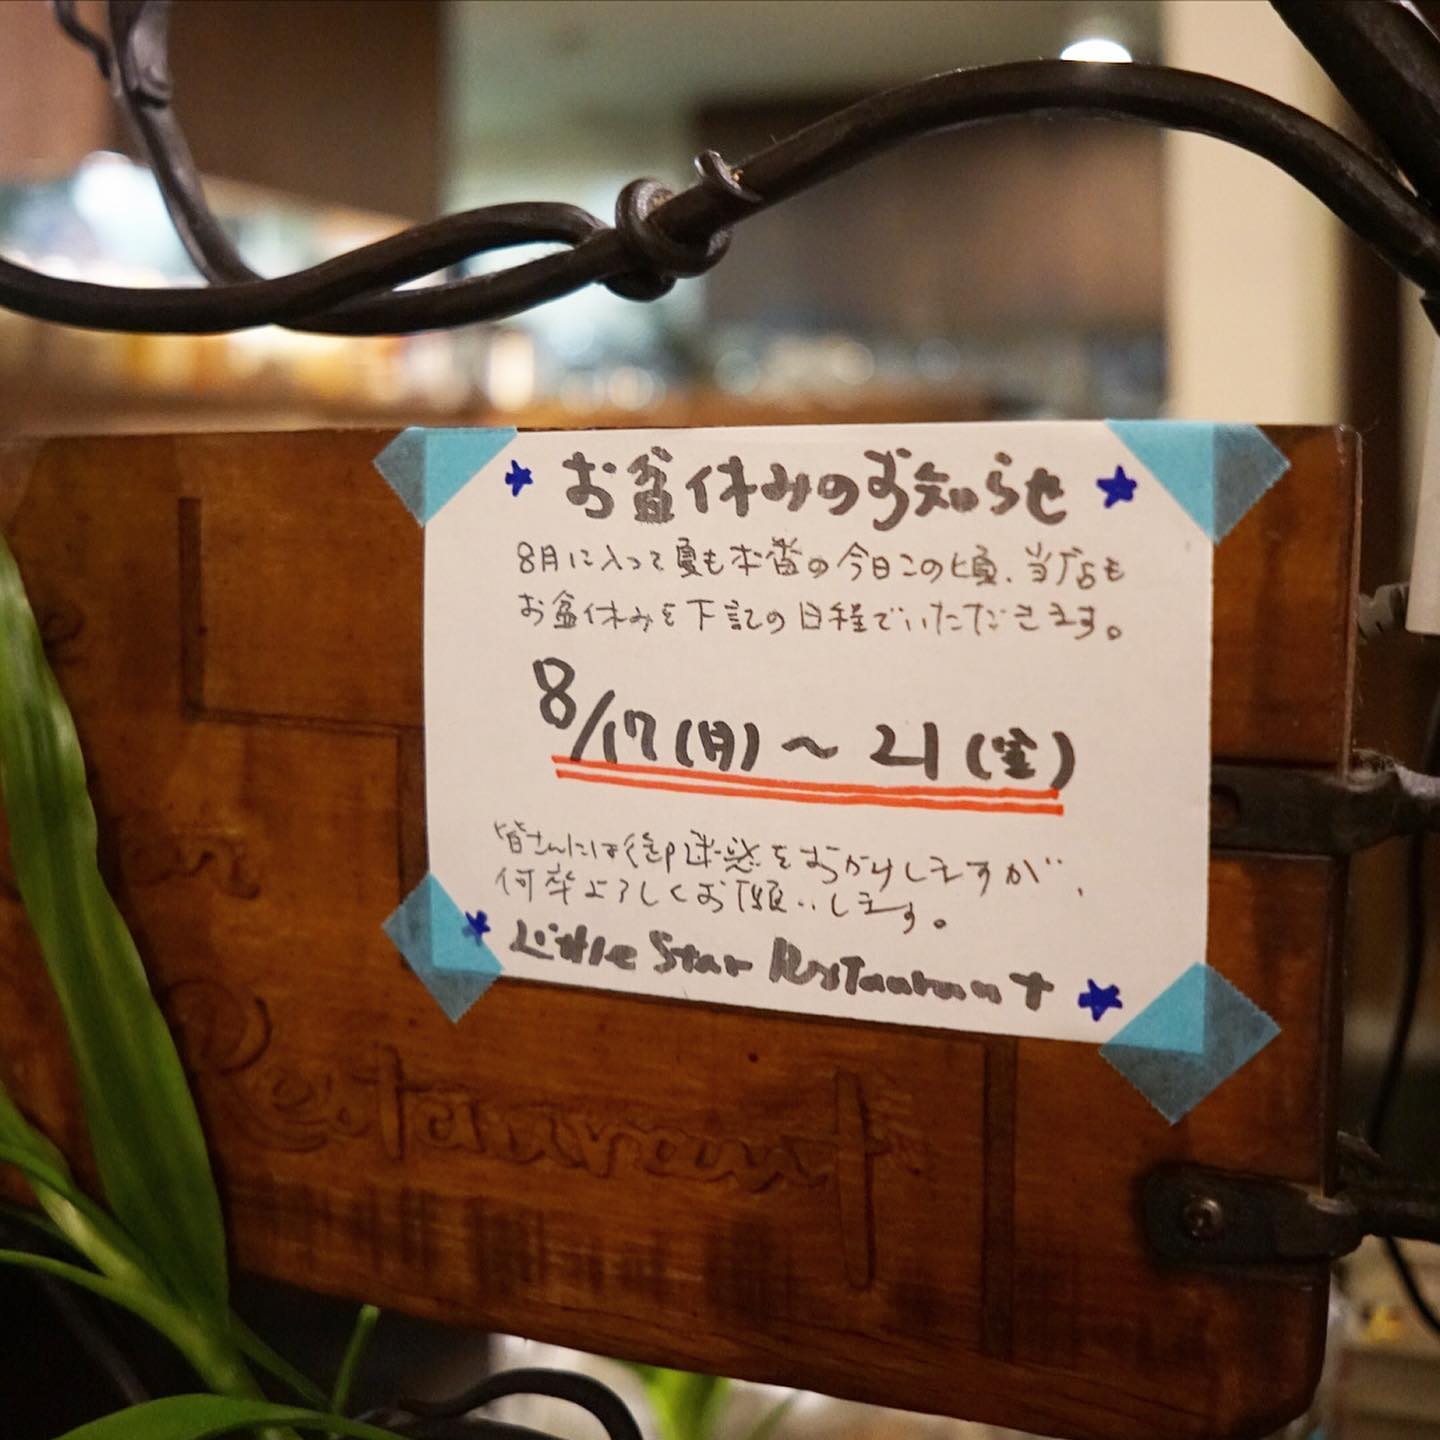 ★ お盆休みのお知らせ ★
8月に入って夏も本番の今日この頃、当店も
お盆休みを下記の日程でいただきます。
8/17(月)～21(金)
皆さんには御迷惑をおかけしますが、
何卒よろしくお願いします。
★ Little Star Restaurant ★
Restaurant